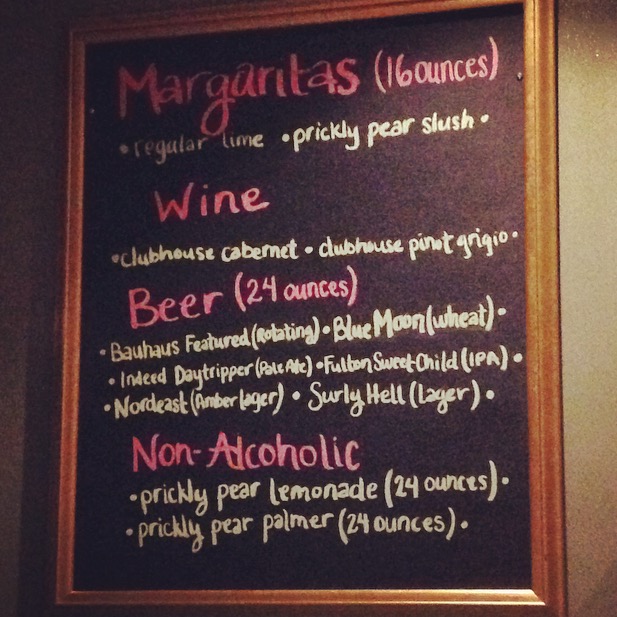 Margaritas (16 ounces)
• regular lime • prickly pear slush •
Wine
• clubhouse cabernet • clubhouse pinot grigio •
Beer (24 ounces)
• Bauhaus Featured (Rotating) • Blue Moon (wheat) •
• Indeed Daytripper (Pale Ale) • Fulton Sweet Child (IPA) •
• Nordeast (Amber lager) • Surly Hell (lager) •
Non-Alcoholic
• prickly pear lemonade (24 ounces) •
• prickly pear palmer (24 ounces) •